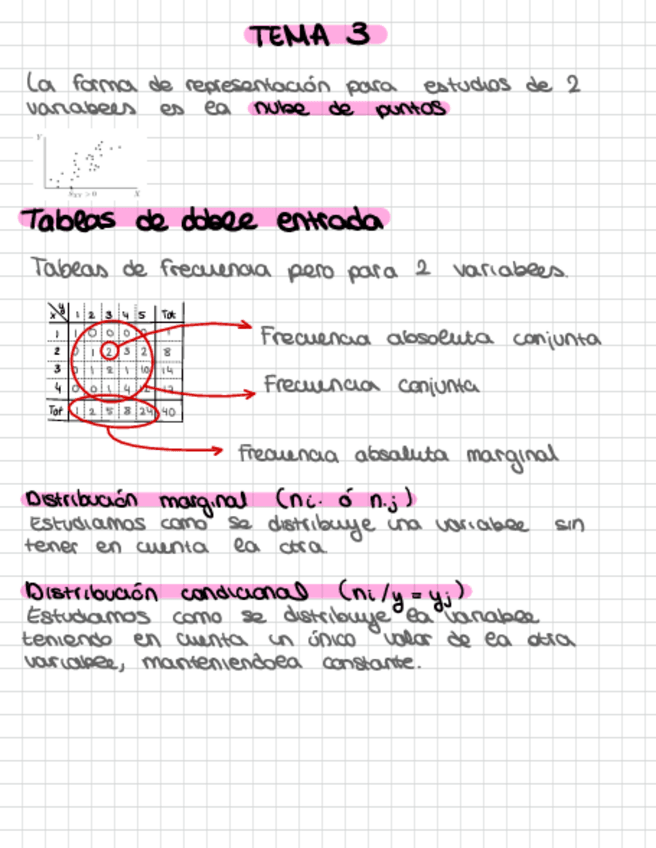 TEMA 3
La forma de representación para estudios de 2
variables es la nube de puntos
Y
Sxy > 0
X
Tablas de doble entrada
Tablas de frecuencia pero para 2 variables.
x y 1 2 3 4 5 Tot
1 1 0 0 0 0 1
2 0 1 2 3 2 8
3 0 1 2 1 10 14
4 0 0 1 4 12
Tot 1 2 5 8 24 40
Frecuencia absoluta conjunta
Frecuencia conjunta
Frecuencia absoluta marginal
Distribución marginal (ni· ó n·j)
Estudiamos como se distribuye una variable sin
tener en cuenta la otra
Distribución condicional (ni/y = yj)
Estudiamos como se distribuye la variable
teniendo en cuenta un único valor de la otra
variable, manteniendola constante.